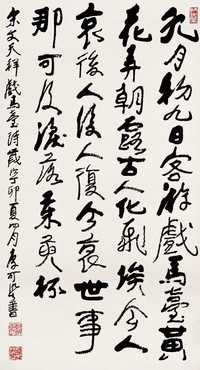 九月初九日客游戲馬臺黃
花弄朝露古人化飛埃今人
哀後人後人復今哀世事
那可及淚落茱萸杯
宋文天祥戲馬臺詩歲辛卯夏四月書